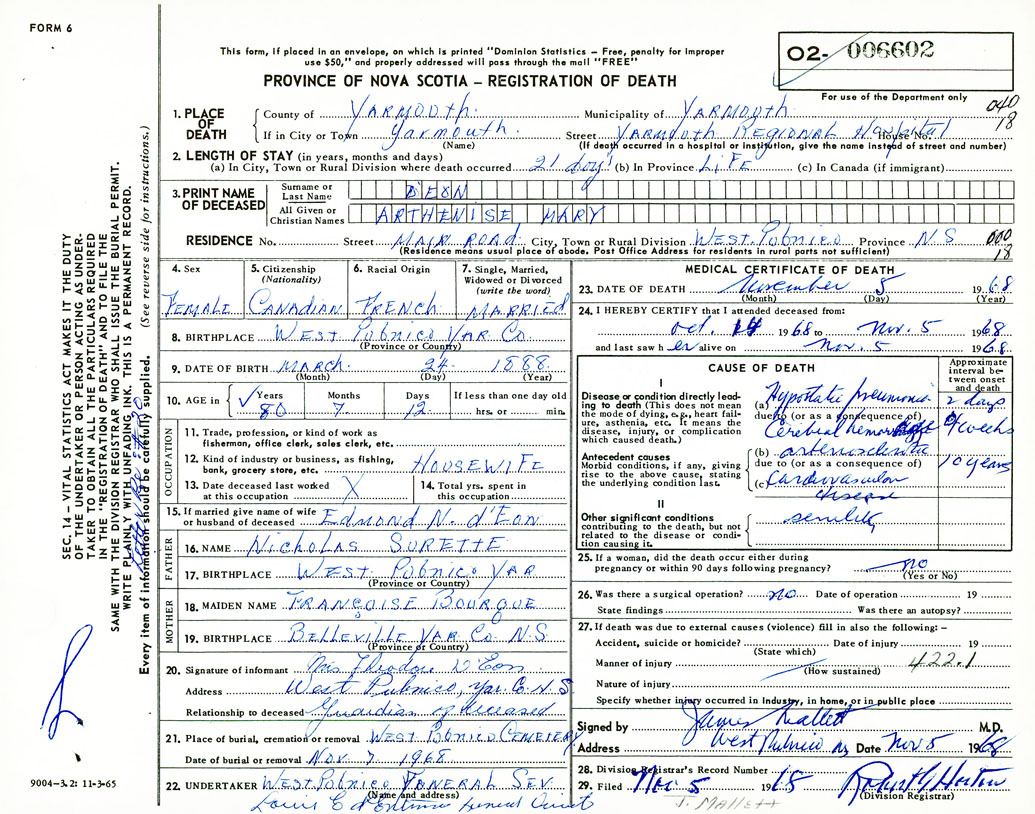 FORM 6
This form, if placed in an envelope, on which is printed "Dominion Statistics – Free, penalty for improper
use $50," and properly addressed will pass through the mail "FREE"
O2- 006602
PROVINCE OF NOVA SCOTIA – REGISTRATION OF DEATH
For use of the Department only
040
18
1. PLACE OF DEATH
County of YARMOUTH. Municipality of YARMOUTH
If in City or Town Yarmouth. Street YARMOUTH REGIONAL Hospital House No.
(Name) (If death occurred in a hospital or institution, give the name instead of street and number)
2. LENGTH OF STAY (in years, months and days)
(a) In City, Town or Rural Division where death occurred 21 days (b) In Province LIFE (c) In Canada (if immigrant)
3. PRINT NAME OF DECEASED
Surname or Last Name DEON
All Given or Christian Names ARTHENISE MARY
RESIDENCE No. Street MAIN ROAD City, Town or Rural Division WEST PUBNICO Province N S
000
18
(Residence means usual place of abode. Post Office Address for residents in rural parts not sufficient)
4. Sex FEMALE
5. Citizenship (Nationality) CANADIAN
6. Racial Origin FRENCH
7. Single, Married, Widowed or Divorced (write the word) MARRIED
8. BIRTHPLACE WEST PUBNICO YAR CO
(Province or Country)
9. DATE OF BIRTH MARCH 24 1888
(Month) (Day) (Year)
10. AGE in Years 80 Months 7 Days 12 If less than one day old hrs. or min.
OCCUPATION
11. Trade, profession, or kind of work as
fisherman, office clerk, sales clerk, etc.
12. Kind of industry or business, as fishing,
bank, grocery store, etc. HOUSEWIFE
13. Date deceased last worked
at this occupation X
14. Total yrs. spent in
this occupation
15. If married give name of wife
or husband of deceased Edmond N. d'Eon
FATHER
16. NAME NICHOLAS SURETTE
17. BIRTHPLACE WEST PUBNICO YAR
(Province or Country)
MOTHER
18. MAIDEN NAME FRANÇOISE BOURQUE
19. BIRTHPLACE BELLEVILLE YAR CO N.S
(Province or Country)
20. Signature of informant Mrs Theodore D'Eon
Address West Pubnico, Yar. Co. N.S
Relationship to deceased Guardian of deceased
21. Place of burial, cremation or removal WEST PUBNICO CEMETERY
Date of burial or removal NOV 7 1968
22. UNDERTAKER WEST PUBNICO FUNERAL SEV.
(Name and address)
Louis C d'Entremont
MEDICAL CERTIFICATE OF DEATH
23. DATE OF DEATH November 5 1968
(Month) (Day) (Year)
24. I HEREBY CERTIFY that I attended deceased from:
Oct. 14 1968 to Nov. 5 1968
and last saw her alive on Nov. 5 1968
CAUSE OF DEATH
Approximate interval between onset and death
I
Disease or condition directly leading to death (This does not mean
the mode of dying, e.g., heart failure, asthenia, etc. It means the
disease, injury, or complication
which caused death.)
(a) Hypostatic pneumonia 2 days
due to (or as a consequence of)
Cerebral hemorrhage weeks
Antecedent causes
Morbid conditions, if any, giving
rise to the above cause, stating
the underlying condition last.
(b) arteriosclerotic
due to (or as a consequence of) 10 years
(c) Cardiovascular
disease
II
Other significant conditions
contributing to the death, but not
related to the disease or condition causing it.
senility
25. If a woman, did the death occur either during
pregnancy or within 90 days following pregnancy? no
(Yes or No)
26. Was there a surgical operation? no. Date of operation 19
State findings Was there an autopsy?
27. If death was due to external causes (violence) fill in also the following:–
Accident, suicide or homicide? Date of injury 19
(State which)
Manner of injury 422.1
(How sustained)
Nature of injury
Specify whether injury occurred in Industry, in home, or in public place
Signed by James Mallett M.D.
Address West Pubnico NS Date Nov 5 1968
28. Division Registrar's Record Number 15
29. Filed Nov. 5 19
(Division Registrar)
J. MALLETT
SEC. 14 – VITAL STATISTICS ACT MAKES IT THE DUTY
OF THE UNDERTAKER OR PERSON ACTING AS UNDERTAKER TO OBTAIN ALL THE PARTICULARS REQUIRED
IN THE "REGISTRATION OF DEATH" AND TO FILE THE
SAME WITH THE DIVISION REGISTRAR WHO SHALL ISSUE THE BURIAL PERMIT.
WRITE PLAINLY WITH UNFADING INK. THIS IS A PERMANENT RECORD.
Every item of information should be carefully supplied. (See reverse side for instructions.)
9004–3.2: 11-3-65